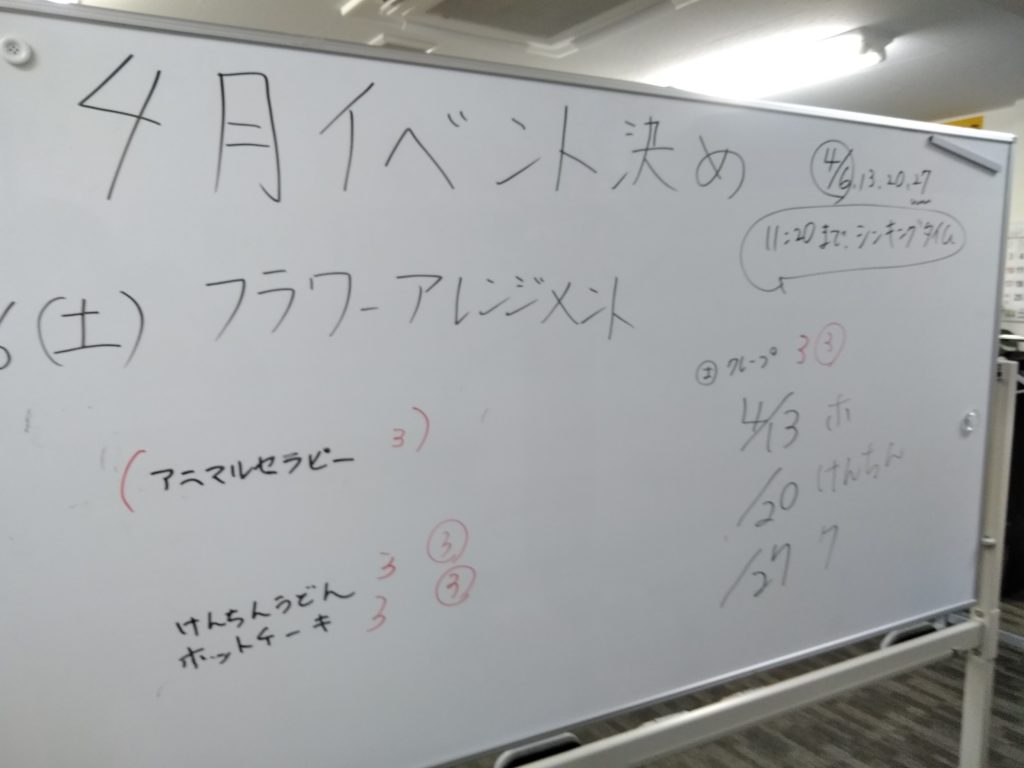 4月イベント決め
4/6.13.20.27
11:20まで シンキングタイム
6(土) フラワーアレンジメント
(アニマルセラピー 3)
けんちんうどん 3 ③
ホットケーキ 3 ③
㊏ クレープ 3 ③
4/13 ホ
/20 けんちん
/27 ク